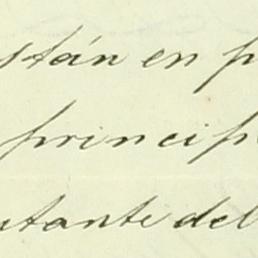 están en p
princip
utante del